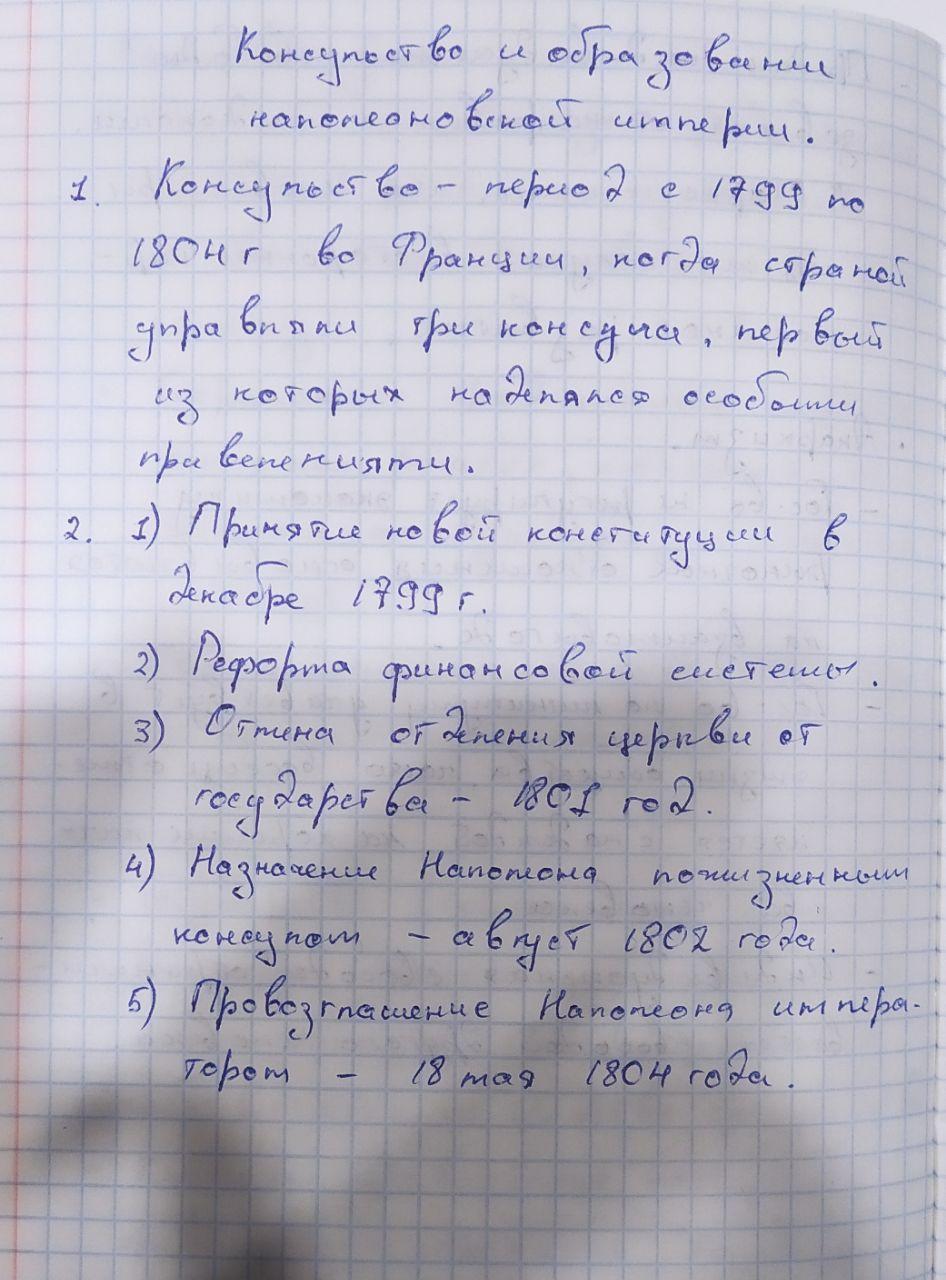 Консульство и образовании
наполеоновской империи.
1. Консульство – период с 1799 по
1804 г во Франции, когда страной
управляли три консула, первый
из которых наделялся особыми
привелениями.
2. 1) Принятие новой конституции в
декабре 1799 г.
2) Реформа финансовой системы.
3) Отмена отделения церкви от
государства – 1801 год.
4) Назначение Наполеона пожизненным
консулом – август 1802 года.
5) Провозглашение Наполеона импера-
тором – 18 мая 1804 года.